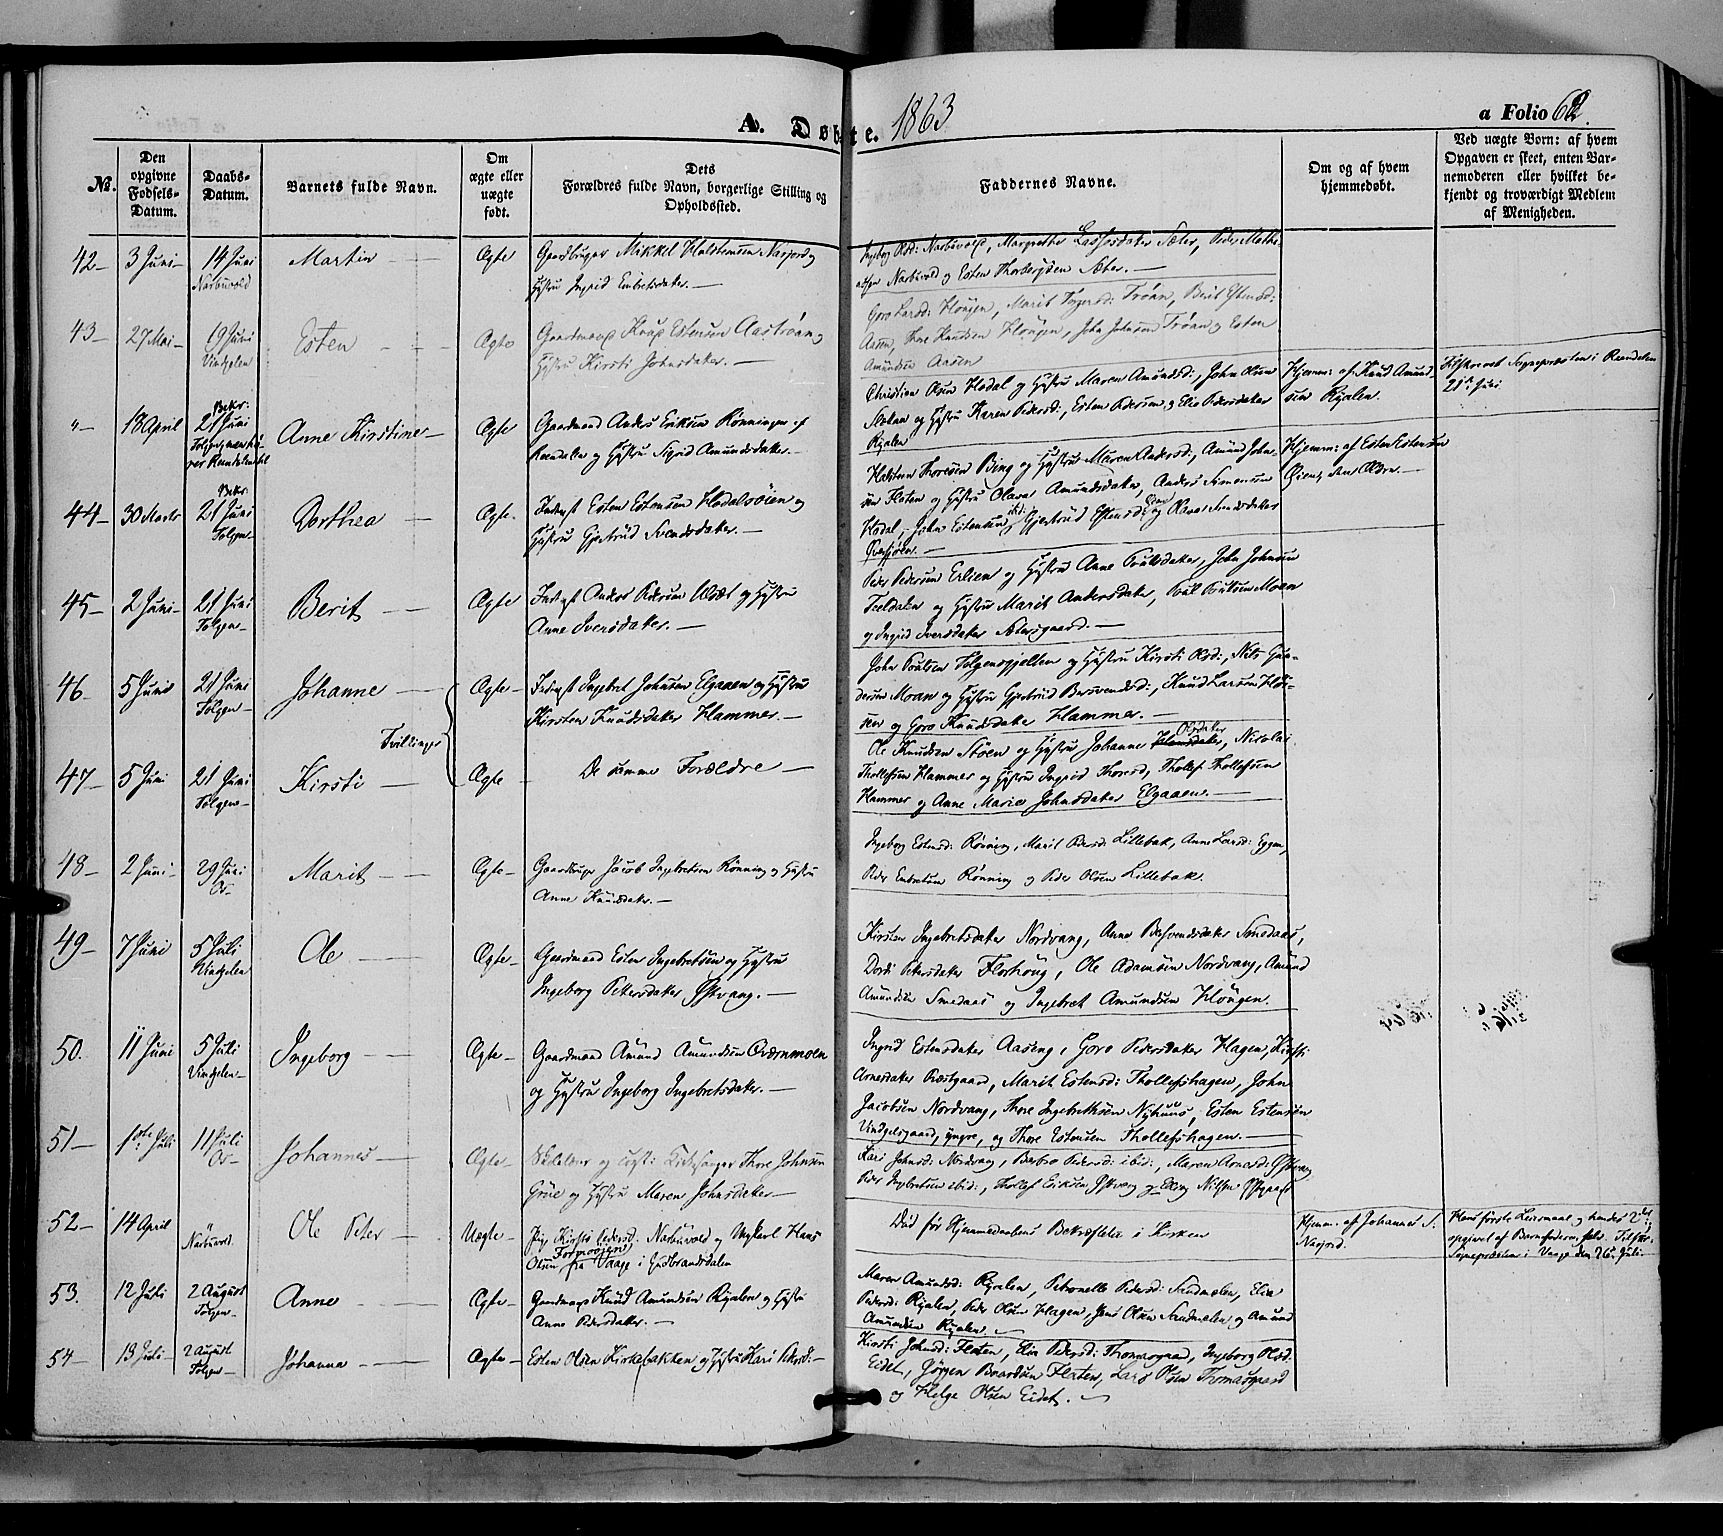 A. Døbte. 1863
a Folio 62.
No.
Den opgivne Fødsels-Datum.
Daabs-Datum.
Barnets fulde Navn.
Om ægte eller uægte født.
Dets Forældres fulde Navn, borgerlige Stilling og Opholdssted.
Faddernes Navne.
Om og af hvem hjemmedøbt.
Ved uægte Børn: af hvem Opgaven er skeet, enten Barnemoderen eller hvilket bekjendt og troværdigt Medlem af Menigheden.
42- 3 Juni- 14 Juni Martin Ægte Gaardbruger Mikkel Halstensen Narjord og
Narbuvold Hustru Ingrid Embretsdater.-
Ingeborg Olsd: Narbuvold, Margrethe Lassesdater Sæter, Peder Mathe-
Narbuvold og Esten Thorbergsen Sæter.-
43- 27 Mai- 19 Juni Esten Ægte Gaardmand Knud Estensen Aastrøen og
Vingelen Hustru Kirsti Johnsdater.-
Goro Larsd: Hougen, Marit Ingersd: Trøan, Berit Estensd:
Aasen, Thore Knudsen Hougen, John Johnsen Trøan og Esten
Amundsen Aasen
"- 18 April Bekr: 21 Juni Anne Kirstine- Ægte Gaardmand Anders Eriksen Rønningen af
Rendalen og Hustru Sigrid Amundsdatter.-
Christian Olsen Hodal og Hustru Maren Amundsd:, John Olsen
og Hustru Karen Pedersd:, Esten Pedersen og Elie Pedersdater
Ryalen
Hjemm: af Knud Amund-
sen Ryalen.
Tilskrevet Sognepræsten i Rendalen
21de Juni
44- 30 Marts Bekr. 21 Juni Dorthea Ægte. Inderst Esten Estensen Hodalsøien og
Tolgen- Hustru Gjertrud Svendsdater.-
Halsten Thoresen Bing og Hustru Maren Andersd:, Amund John-
sen Floten og Hustru Olava Amundsdater, Anders Simensen
Hodal, John Estensen ibid: Gjertrud Estensd: og Olava Svendsdater
Hjemm: af Esten Estensen
Øien, den Ældre.-
45- 2 Juni- 21 Juni Berit Ægte Inderst Anders Pedersen Ulset og Hustru
Tolgen- Anne Iversdater.-
Peder Pedersen Erlien og Hustru Anne Poulsdater, John Johnsen
Teldalen og Hustru Marit Andersdater, Poul Poulsen Moen
og Ingrid Iversdater Sætersgaard.-
46- 5 Juni 21 Juni Johanne Ægte- Inderst Ingebret Johnsen Elgaaen og Hustru
Tolgen- Kirsten Knudsdater Hammer.-
John Poulsen Tolgensgjelten og Hustru Kirsti Olsd:, Nils Gun-
dersen Moen og Hustru Gjertrud Bersvendsd:, Knud Larsen
og Goro Knudsdater Hammer.-
Tvillinger
47- 5 Juni 21 Juni Kirsti Ægte- De samme Forældre-
Tolgen-
Ole Knudsen Støen og Hustru Johanne Olsdater, Nicolai
Thollefsen Hammer og Hustru Ingrid Thoresd, Thollef Thollefsen
Hammer og Anne Marie Johnsdater Elgaaen.-
48- 2 Juni- 29 Juni Marit Ægte- Gaardbruger Jacob Ingebretsen Rønning og Hustru
Os- Anne Knudsdater.-
Ingeborg Estensd: Rønning, Marit Pedersd: Lillebak, Anne Larsd: Eggen,
Peder Embretsen Rønning og Peder Olsen Lillebak.
49- 7 Juni 5 Juli Ole Ægte- Gaardmand Esten Ingebretsen og Hustru
Vingelen Ingeborg Petersdater Østvang.-
Kirsten Ingebretsdater Nordvang, Anne Bersvendsdater Smedaas,
Dordi Petersdater Florhoug, Ole Adamsen Nordvang, Amund
Amundsen Smedaas og Ingebret Amundsen Hougen.
50. 11 Juni 5 Juli Ingeborg Ægte- Gaardmand Amund Amundsen Qværnmoen
Vingelen- og Hustru Ingeborg Ingebretsdater.-
Ingrid Estensdater Aaseng, Goro Pedersdater Hagen, Kirsti
Arnesdater Præstgaard, Marit Estensd: Thollefshagen, John
Jacobsen Nordvang, Thore Ingebrethsen Nyhuus, Esten Estensen
Vingelsgaard, yngre, og Thore Estensen Thollefshagen.-
51- 1ste Juli 11 Juli Johannes- Ægte- Skolelærer og Kirkesanger Thore Johnsen
Os- Grue og Hustru Maren Johnsdater-
Kari Johnsd: Nordvang, Berbro Pedersd: ibid:, Maren Arnesd: Østvang
Peder Ingebretsen ibid:, Thollef Eriksen Østvang og Elling Nilsen
52- 14 April " Ole Peter Uægte- Pige Kirsti Pedersd: Narbuvold og Ungkarl Hans
Narbuvold. Olsen Formoeiene fra Vaage i Gudbrandsdalen
Død før Hjemmedaabens Bekræftelse i Kirken
Hjemm. af Johannes S.
Narjord.
Hans første Leiermaal og hendes 2det,
opgivet af Barnefaderen selv. Tilskr.
Sognepræsten i Vaage den 26. Juli
53. 12 Juli 2 August Anne Ægte- Gaardmand Knud Amundsen Ryalen og Hustru
Tolgen- Anne Pedersdater.-
Maren Amundsd: Ryalen, Petronelle Pedersd: Sandmælen, Elie
Pedersd: Ryalen, Peder Olsen Hagen, Jens Olsen Sandmælen og Amund
Amundsen Ryalen.-
54- 13 Juli- 2 August Johanna Ægte- Esten Olsen Kirkebakken og Hustru Kari Pedersd:-
Tolgen-
Kirsti Johnsd: Floten, Elie Pedersd: Thomasgaard, Ingeborg Olsd:
Eidet, Jørgen Baardsen Floten, Lars Olsen Thomasgaard
og Helge Olsen Eidet.-